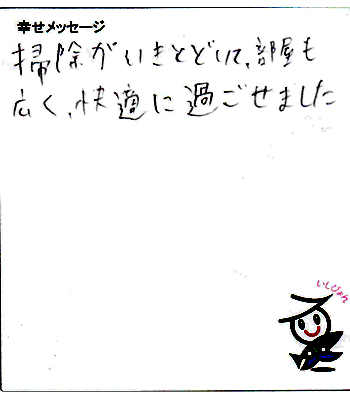 幸せメッセージ
掃除がいきとどいて、部屋も
広く、快適に過ごせました